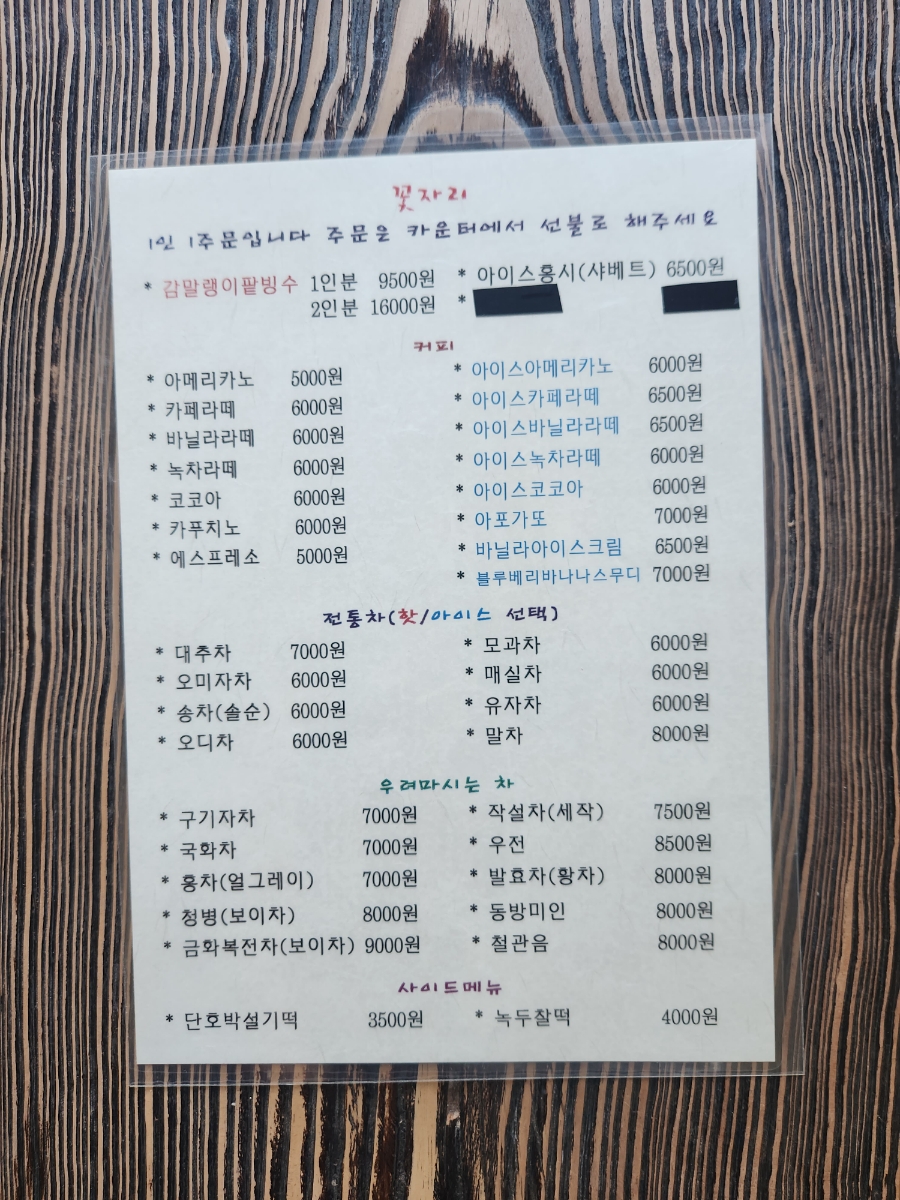 꽃자리
1인 1주문입니다 주문은 카운터에서 선불로 해주세요
* 감말랭이팥빙수 1인분 9500원 * 아이스홍시(샤베트) 6500원
2인분 16000원 *
커피
* 아메리카노 5000원 * 아이스아메리카노 6000원
* 카페라떼 6000원 * 아이스카페라떼 6500원
* 바닐라라떼 6000원 * 아이스바닐라라떼 6500원
* 녹차라떼 6000원 * 아이스녹차라떼 6000원
* 코코아 6000원 * 아이스코코아 6000원
* 카푸치노 6000원 * 아포가또 7000원
* 에스프레소 5000원 * 바닐라아이스크림 6500원
* 블루베리바나나스무디 7000원
전통차(핫/아이스 선택)
* 대추차 7000원 * 모과차 6000원
* 오미자차 6000원 * 매실차 6000원
* 송차(솔순) 6000원 * 유자차 6000원
* 오디차 6000원 * 말차 8000원
우려마시는 차
* 구기자차 7000원 * 작설차(세작) 7500원
* 국화차 7000원 * 우전 8500원
* 홍차(얼그레이) 7000원 * 발효차(황차) 8000원
* 청병(보이차) 8000원 * 동방미인 8000원
* 금화복전차(보이차) 9000원 * 철관음 8000원
사이드메뉴
* 단호박설기떡 3500원 * 녹두찰떡 4000원